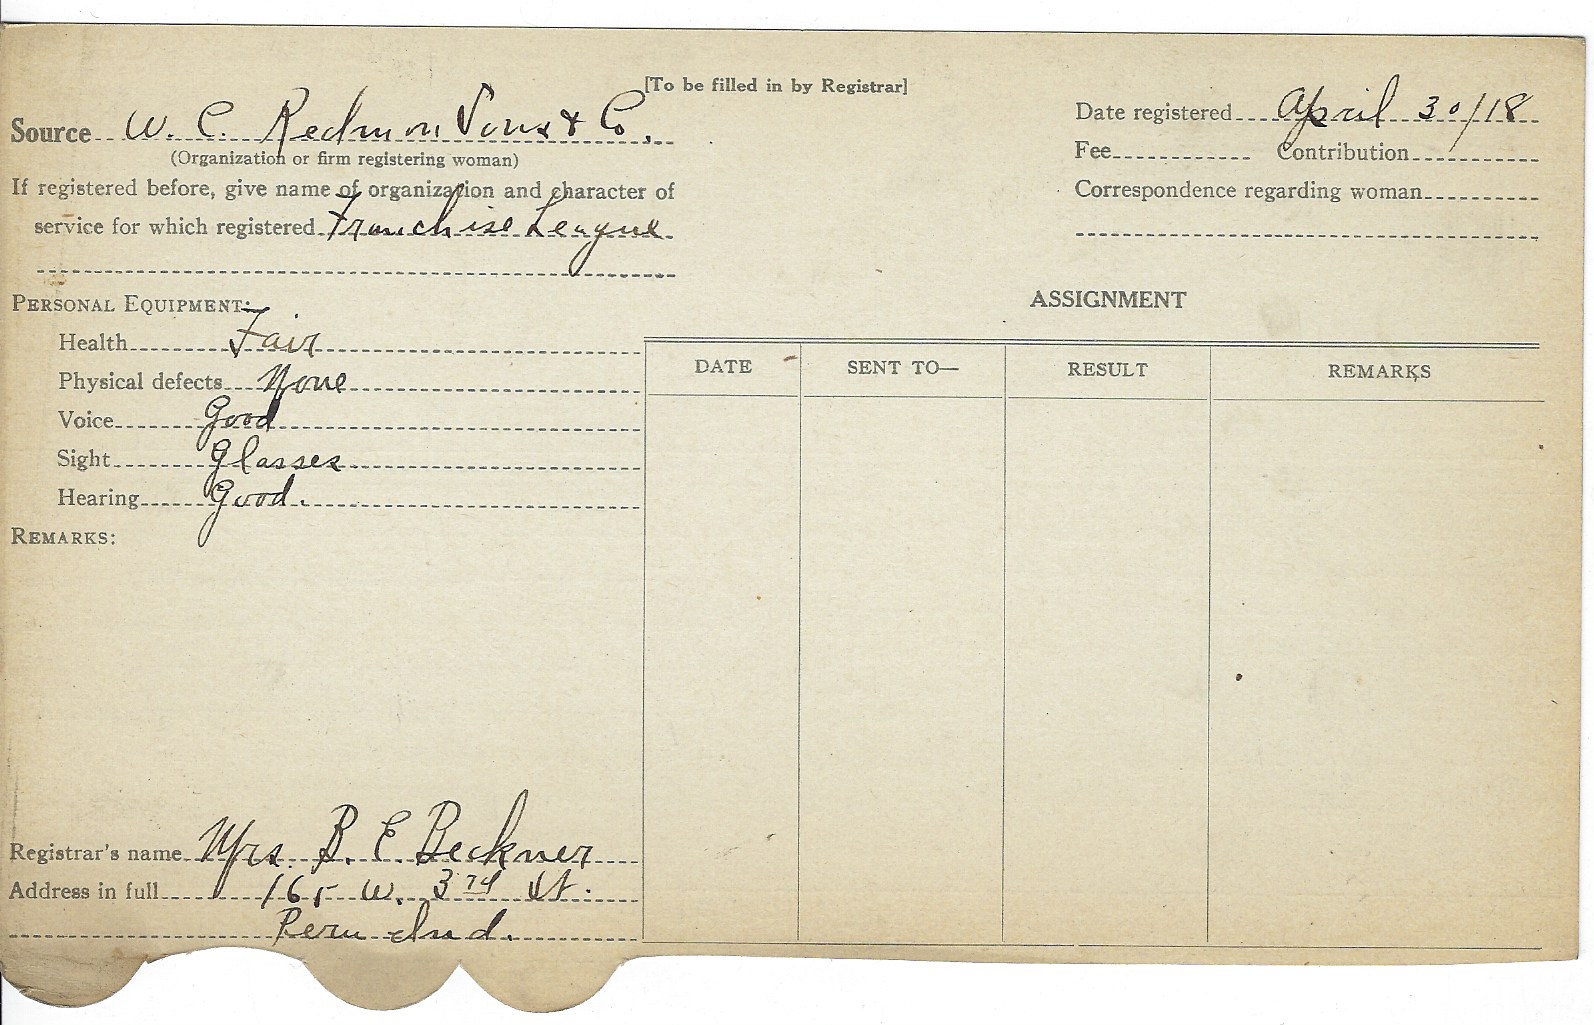 [To be filled in by Registrar]
Source W. C. Redmon Sons & Co.
(Organization or firm registering woman)
If registered before, give name of organization and character of
service for which registered Franchise League
Date registered April 30/18
Fee Contribution
Correspondence regarding woman
PERSONAL EQUIPMENT:
Health Fair
Physical defects None
Voice Good
Sight Glasses
Hearing Good.
REMARKS:
ASSIGNMENT
DATE SENT TO— RESULT REMARKS
Registrar's name Mrs. B. E. Beckner
Address in full 165 W. 3rd St.
Peru Ind.